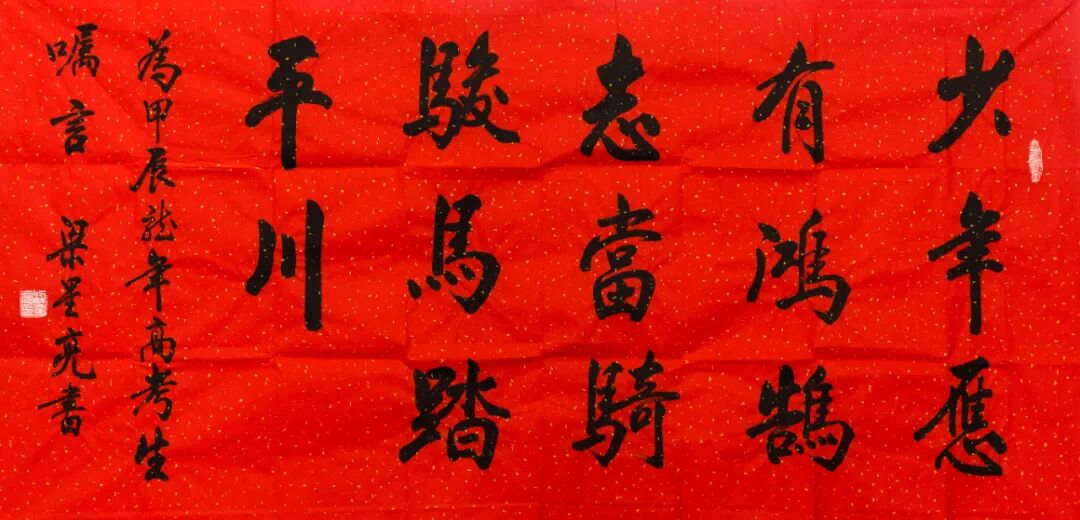 少年應
有鴻鵠
志當騎
駿馬踏
平川
為甲辰龍年高考生
嘱言 梁星亮書